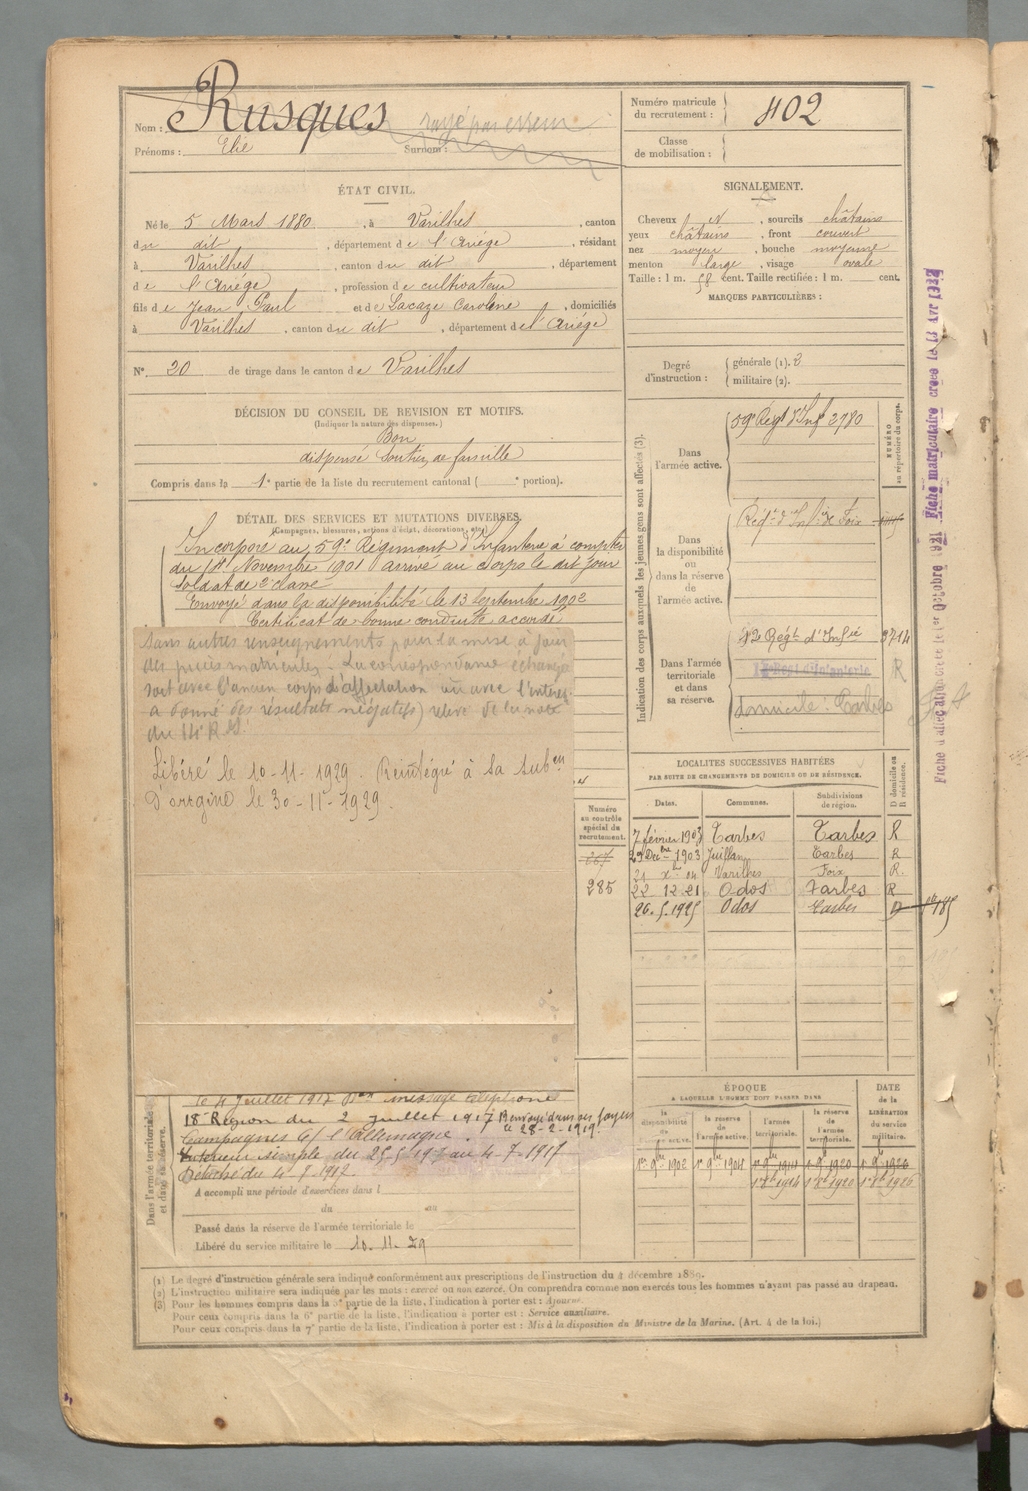 Nom : Rusques rayé par erreur
Prénoms : Elie Surnom :
Numéro matricule du recrutement : 402
Classe de mobilisation :
ÉTAT CIVIL.
Né le 5 Mars 1880, à Varilhes, canton
du dit, département de l'Ariège, résidant
à Varilhes, canton du dit, département
de l'Ariège, profession de cultivateur
fils de Jean Paul et de Lacaze Caroline, domiciliés
à Varilhes, canton du dit, département de l'Ariège
N° 20 de tirage dans le canton de Varilhes
DÉCISION DU CONSEIL DE REVISION ET MOTIFS.
(Indiquer la nature des dispenses.)
Bon
dispensé soutien de famille
Compris dans la 1e partie de la liste du recrutement cantonal ( e portion).
DÉTAIL DES SERVICES ET MUTATIONS DIVERSES.
(Campagnes, blessures, actions d'éclat, décorations, etc.)
Incorporé au 59e Régiment d'Infanterie à compter
du 14 Novembre 1901 arrivé au corps le dit jour
soldat de 2e classe
Envoyé dans la disponibilité le 13 Septembre 1902
Certificat de bonne conduite accordé
sans autres renseignements pour la mise à jour
des pièces matricules - La correspondance échangée
soit avec l'ancien corps d'affectation ou avec l'intéressé
a donné des résultats négatifs) relevé de la note
du 14 R.I.
Libéré le 10-11-1929. Réintégré à sa subon
d'origine le 30-11-1929.
le 4 Juillet 1917 message téléphoné
18e Région du 2 Juillet 1917 Renvoyé dans ses foyers
le 28-2-1919.
Campagnes c/ l'Allemagne.
Intérieur simple du 25-5-1917 au 4-7-1917
Détaché du 4-7-1917.
Dans l'armée territoriale et dans sa réserve.
A accompli une période d'exercices dans l
du au
Passé dans la réserve de l'armée territoriale le
Libéré du service militaire le 10-11-29
SIGNALEMENT.
Cheveux N, sourcils châtains
yeux châtains, front couvert
nez moyen, bouche moyenne
menton large, visage ovale
Taille : 1 m. 58 cent. Taille rectifiée : 1 m. cent.
MARQUES PARTICULIÈRES :
Degré d'instruction : générale (1). 3
militaire (2).
Indication des corps auxquels les jeunes gens sont affectés (3).
NUMÉRO au répertoire du corps.
Dans l'armée active. 59e Régt d'Infie 2780
Dans la disponibilité ou dans la réserve de l'armée active. Régt d'Infie de Foix
Dans l'armée territoriale et dans sa réserve. 42 Régt d'Infie 3714
Régt d'Infanterie R
domicile : Tarbes
LOCALITES SUCCESSIVES HABITÉES
PAR SUITE DE CHANGEMENTS DE DOMICILE OU DE RÉSIDENCE.
Dates. Communes. Subdivisions de région. D domicile ou R résidence.
7 février 1903 Tarbes Tarbes R
29 Decbre 1903 Juillan Tarbes R
21 xbre 04 Varilhes Foix R.
22 12 21 Odos Tarbes R
26.5.1925 Odos Tarbes D
Numéro au contrôle spécial du recrutement.
267
285
ÉPOQUE
A LAQUELLE L'HOMME DOIT PASSER DANS
DATE de la LIBÉRATION du service militaire.
la disponibilité de l'armée active. la réserve de l'armée active. l'armée territoriale. la réserve de l'armée territoriale.
1er 9bre 1902 1er 9bre 1904 1er 9bre 1914 1er 9bre 1920 1er 9bre 1926
Fiche d'affectation créée le 1er Octobre 1921 Fiche matriculaire créée le 13 Avr 1927
(1) Le degré d'instruction générale sera indiqué conformément aux prescriptions de l'instruction du 4 décembre 1889.
(2) L'instruction militaire sera indiquée par les mots : exercé ou non exercé. On comprendra comme non exercés tous les hommes n'ayant pas passé au drapeau.
(3) Pour les hommes compris dans la 3e partie de la liste, l'indication à porter est : Ajourné.
Pour ceux compris dans la 6e partie de la liste, l'indication à porter est : Service auxiliaire.
Pour ceux compris dans la 7e partie de la liste, l'indication à porter est : Mis à la disposition du Ministre de la Marine. (Art. 4 de la loi.)